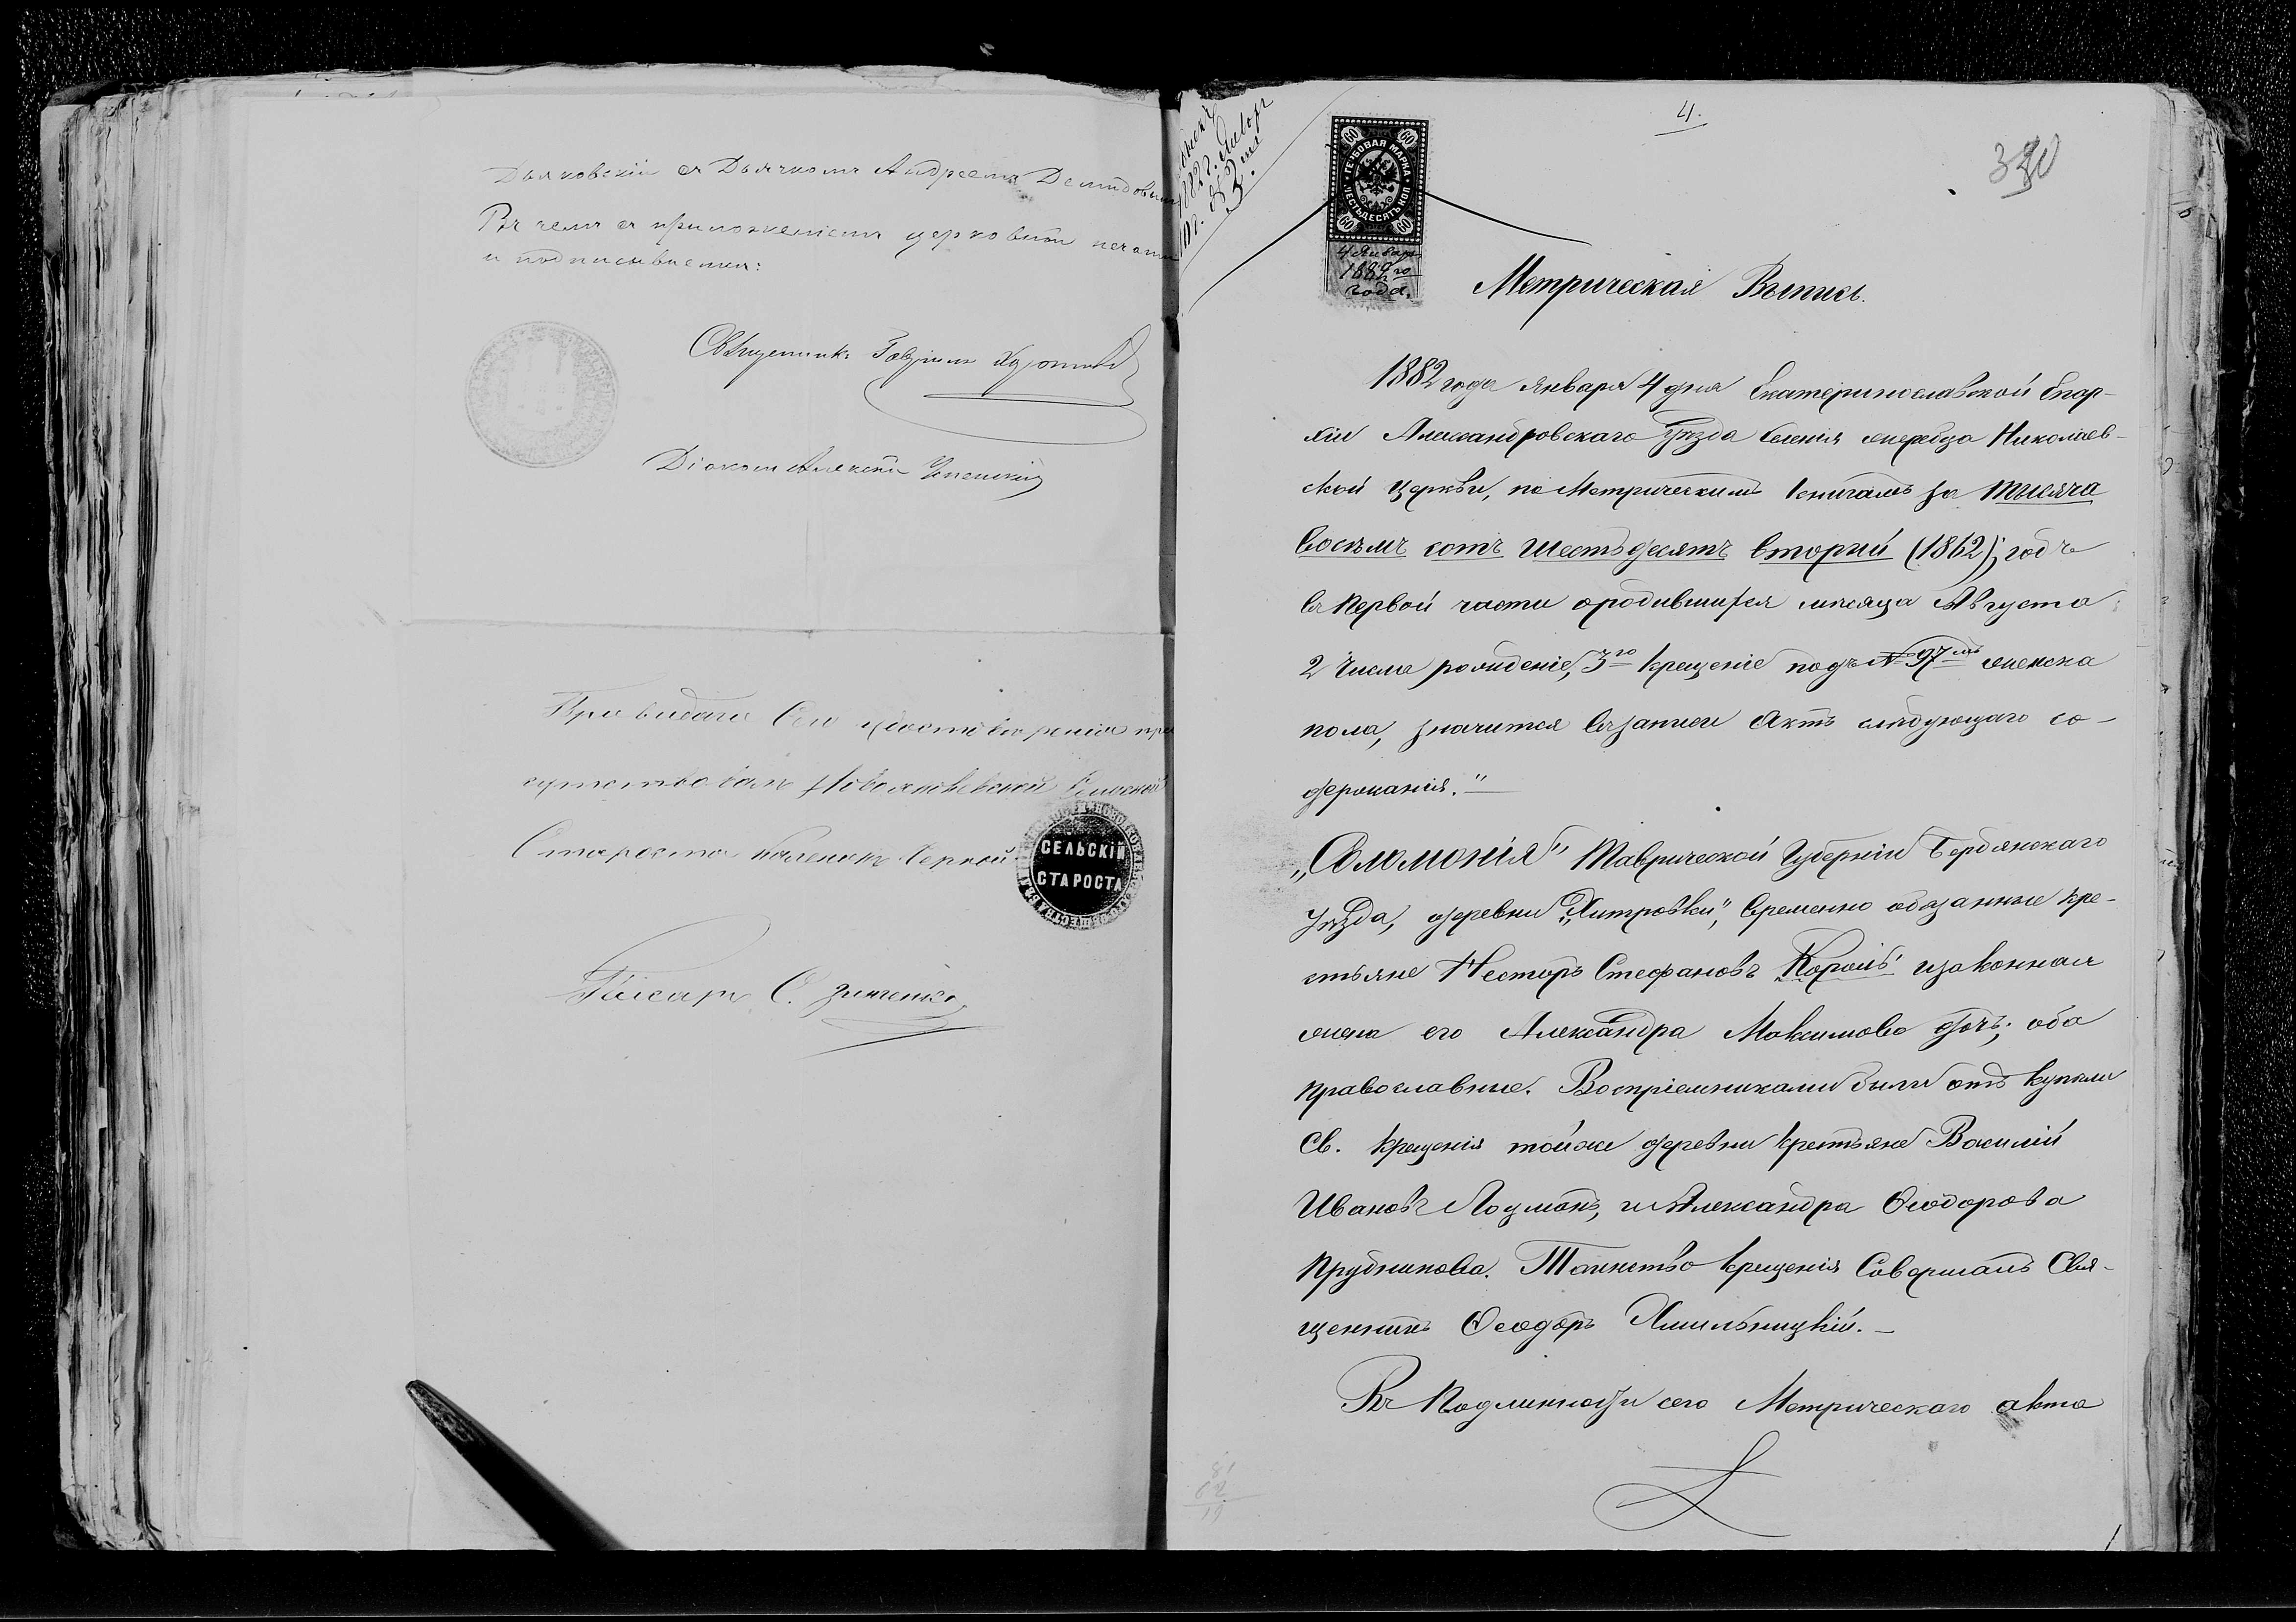 Дьяковскій съ Дьячкомъ Андреемъ Демидовым
Въ чемъ съ приложеніемъ церковной печати
и подписываемся:
Священникъ Гавріилъ
Діаконъ Алексѣй
При выдачи Сего удостовѣренія при
сутствовалъ Сельской
Староста Черной
СЕЛЬСКІЙ
СТАРОСТА
Писарь С. Зинченко
1882 г. Январ
4.
380
60 60
ГЕРБОВАЯ МАРКА
ШЕСТЬДЕСЯТЪ КОП
60 60
4 Января
1882 го
года.
Метрическая Выпись.
1882 года Января 4 дня Екатеринославской Епар-
хіи Александровскаго Уѣзда Селенія Николаев-
ской Церкви, по Метрическимъ Книгамъ за Тысяча
Восемъ сотъ Шестьдесятъ вторый (1862), годъ
въ Первой части ородившихся мѣсяца Августа
2 Числа рожденіе, 3го Крещеніе подъ № 97 мъ женска
пола, значится въ записи Актъ слѣдующаго со-
держанія."
„Соломонія" Таврической Губерніи Бердянскаго
Уѣзда, деревни „Хитровки", Временно обязанные кре-
стьяне Несторъ Стефановъ Король изаконная
жена его Александра Максимова дочь; оба
православные. Воспріемниками были отъ купели
Св. Крещенія тойже деревни крестьяне Василій
Ивановъ Лоцманъ, и Александра Ѳеодорова
Прудникова. Таинство крещенія Совершалъ Свя-
щенникъ Ѳеодоръ Хмильницкій.
Въ Подлинности сего Метрическаго акта
81
62
19